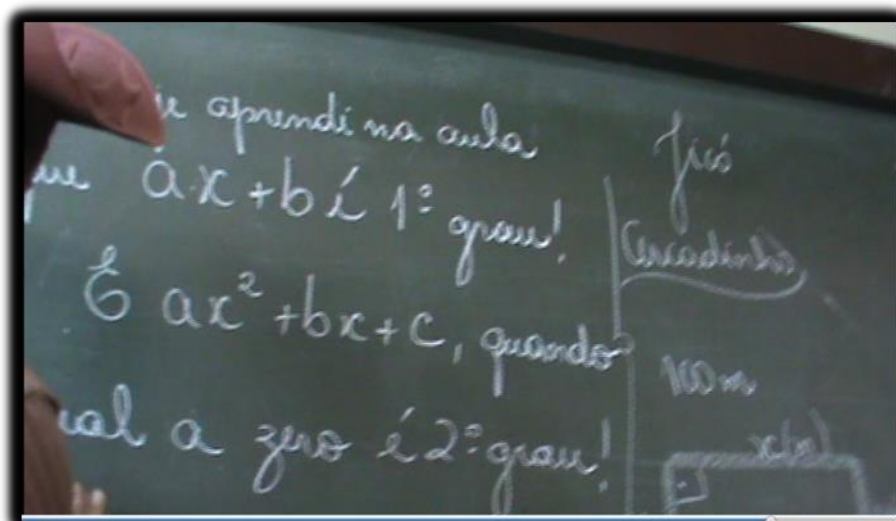 aprendi na aula
ax+b é 1º grau!
E ax²+bx+c, quando
a zero é 2º grau!
Cercadinho
100m